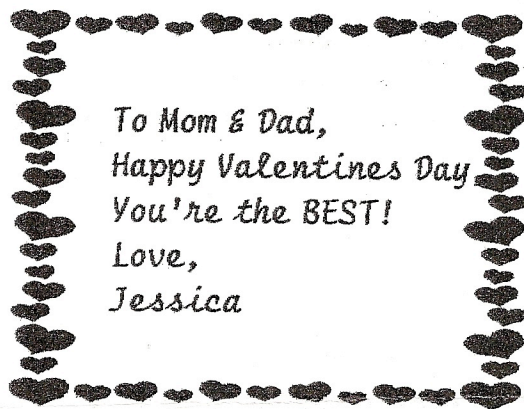 To Mom & Dad,
Happy Valentines Day
You're the BEST!
Love,
Jessica